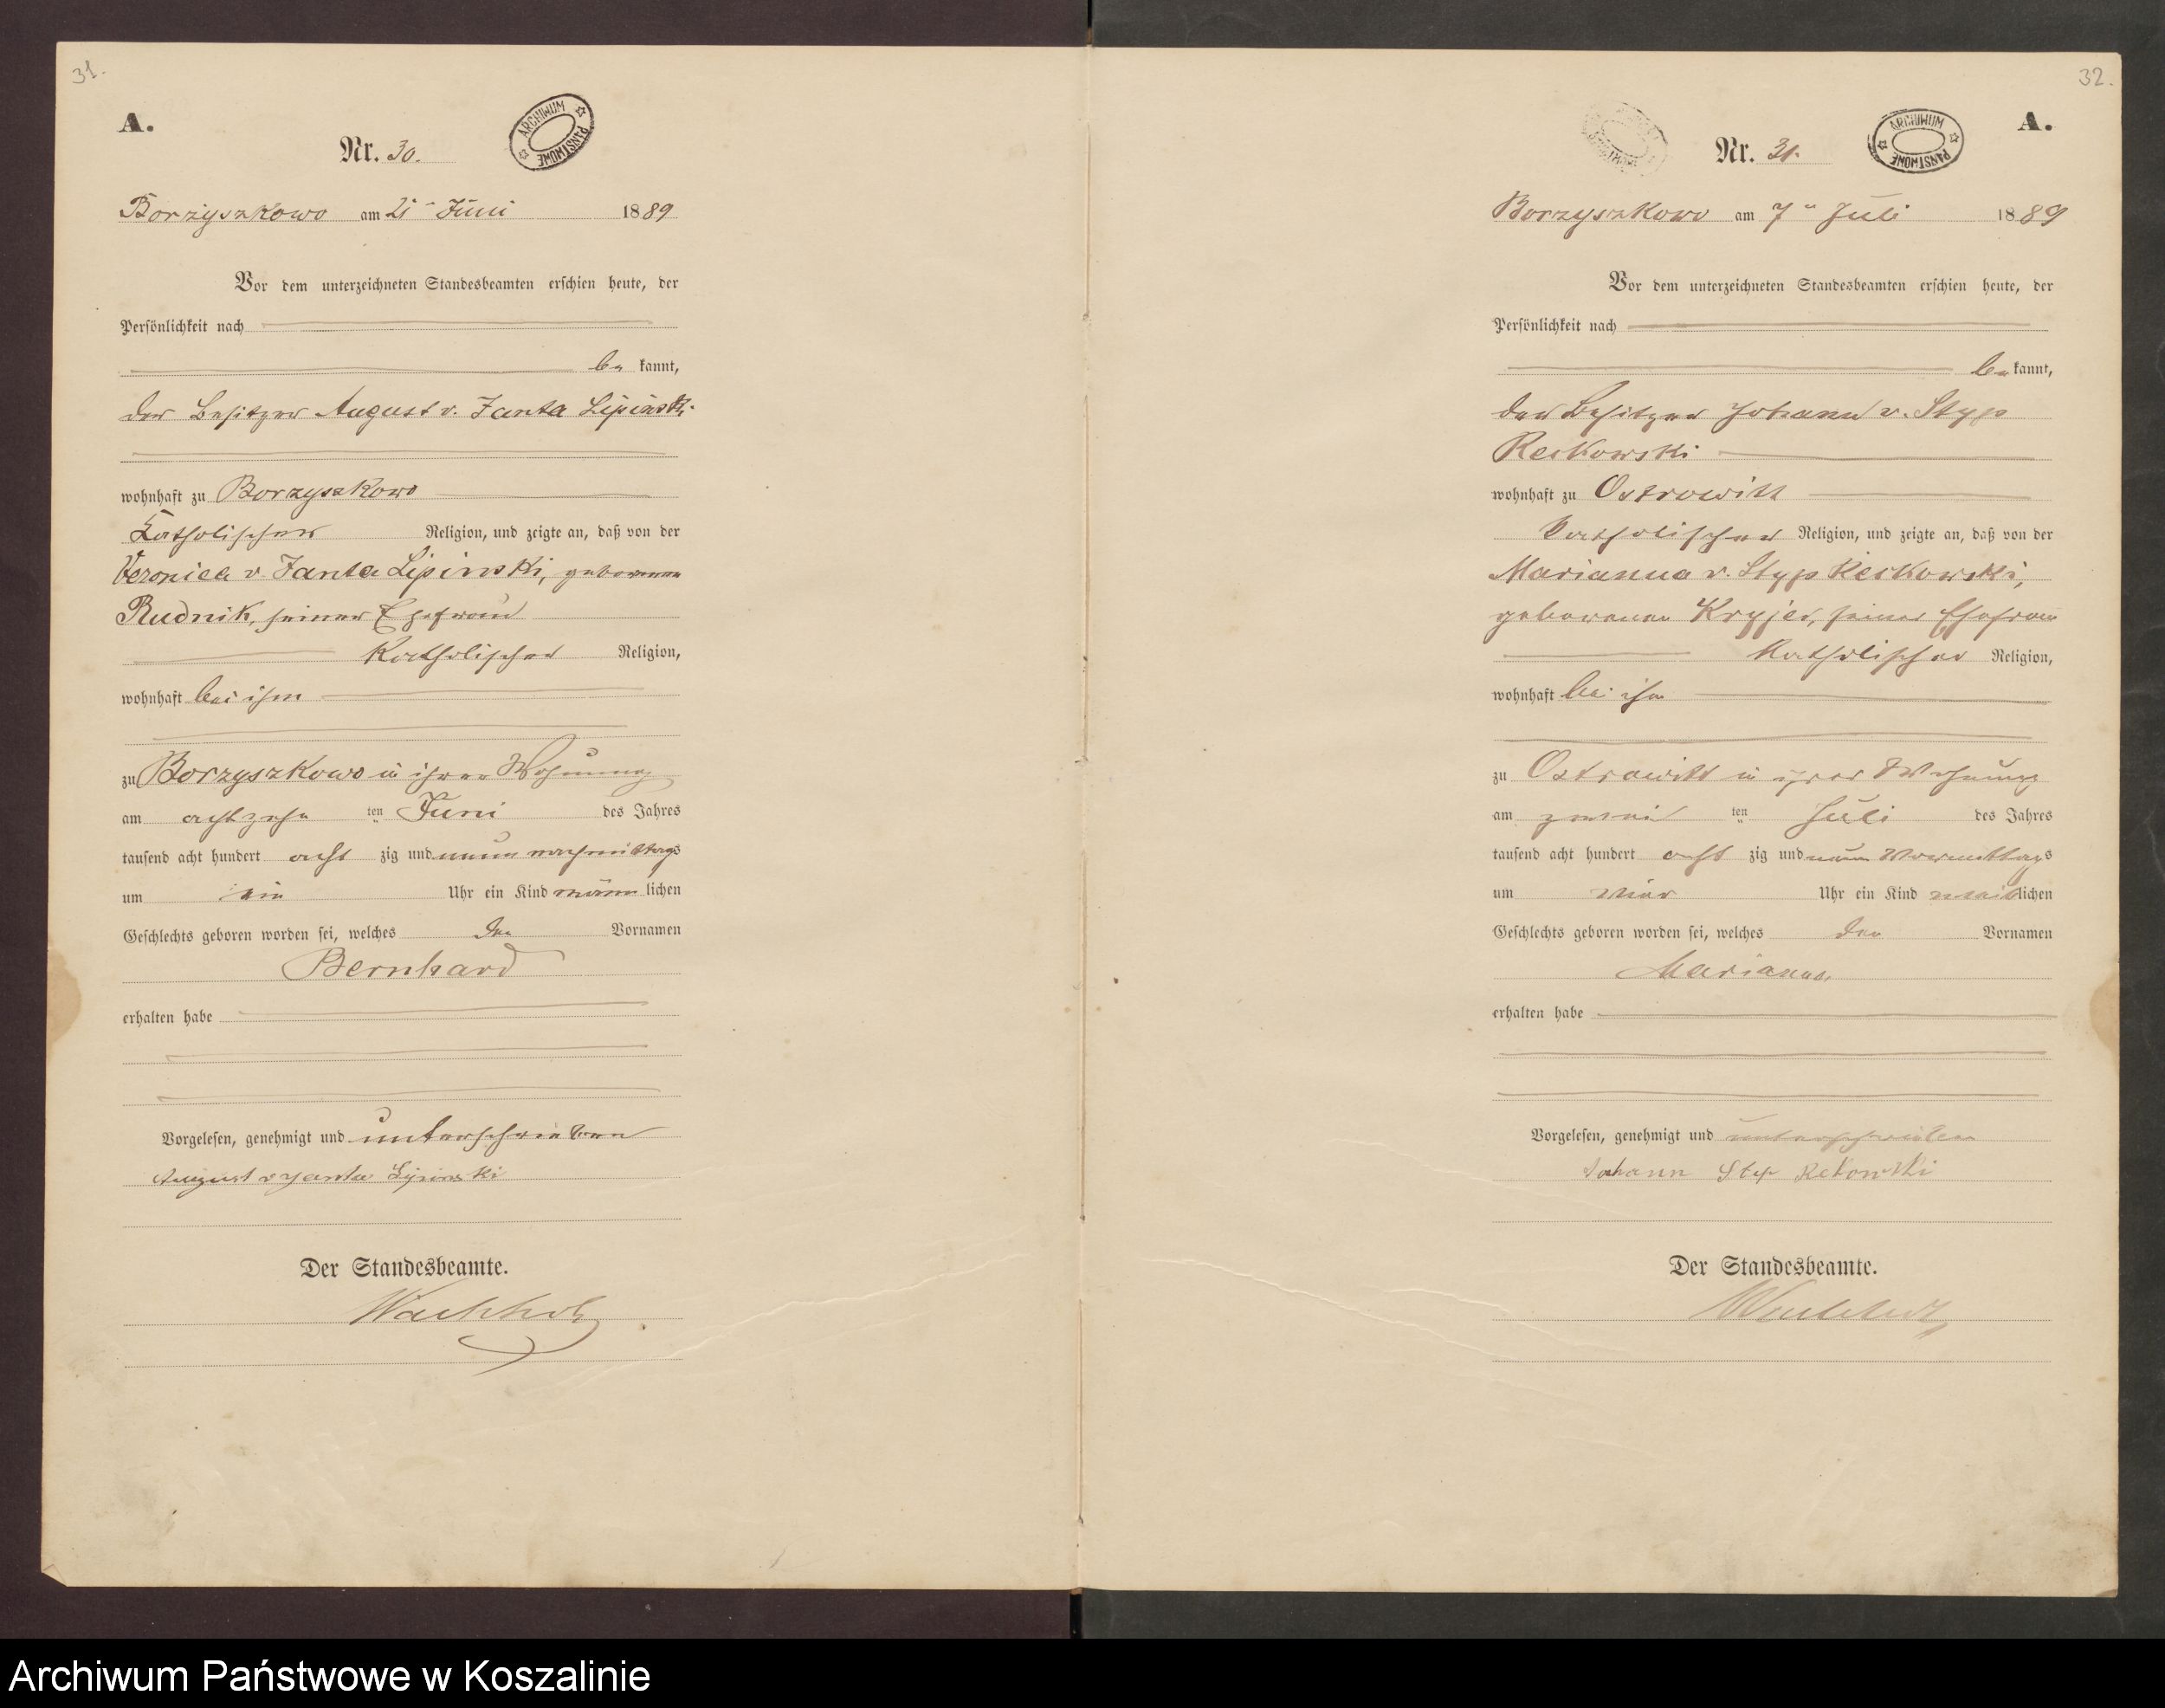 31.
A.
ARCHIWUM PAŃSTWOWE
Nr. 30.
Borzyszkowo am 21 Juni 1889
Vor dem unterzeichneten Standesbeamten erschien heute, der
Persönlichkeit nach
be kannt,
der Besitzer August v. Janta Lipinski
wohnhaft zu Borzyszkowo
Katholischer Religion, und zeigte an, daß von der
Veronica v. Janta Lipinski, geborenen
Rudnik, seiner Ehefrau
Katholischer Religion,
wohnhaft bei ihm
zu Borzyszkowo in ihrer Wohnung
am achtzehn ten Juni des Jahres
tausend acht hundert acht zig und neun nachmittags
um ein Uhr ein Kind männ lichen
Geschlechts geboren worden sei, welches den Vornamen
Bernhard
erhalten habe
Vorgelesen, genehmigt und unterschrieben
August v Janta Lipinski
Der Standesbeamte.
Wachholz
32.
A.
ARCHIWUM PAŃSTWOWE
Nr. 31.
Borzyszkowo am 7 Juli 1889
Vor dem unterzeichneten Standesbeamten erschien heute, der
Persönlichkeit nach
be kannt,
der Besitzer Johann v. Styp
Reckowski
wohnhaft zu Ostrowitt
Katholischer Religion, und zeigte an, daß von der
Marianna v. Styp Reckowski,
geborenen seiner Ehefrau
Katholischer Religion,
wohnhaft bei ihm
zu Ostrowitt in ihrer Wohnung
am zwei ten Juli des Jahres
tausend acht hundert acht zig und neun Vormittags
um vier Uhr ein Kind weib lichen
Geschlechts geboren worden sei, welches den Vornamen
Marianna
erhalten habe
Vorgelesen, genehmigt und unterschrieben
Johann Styp Rekowski
Der Standesbeamte.
Wachholz
Archiwum Państwowe w Koszalinie